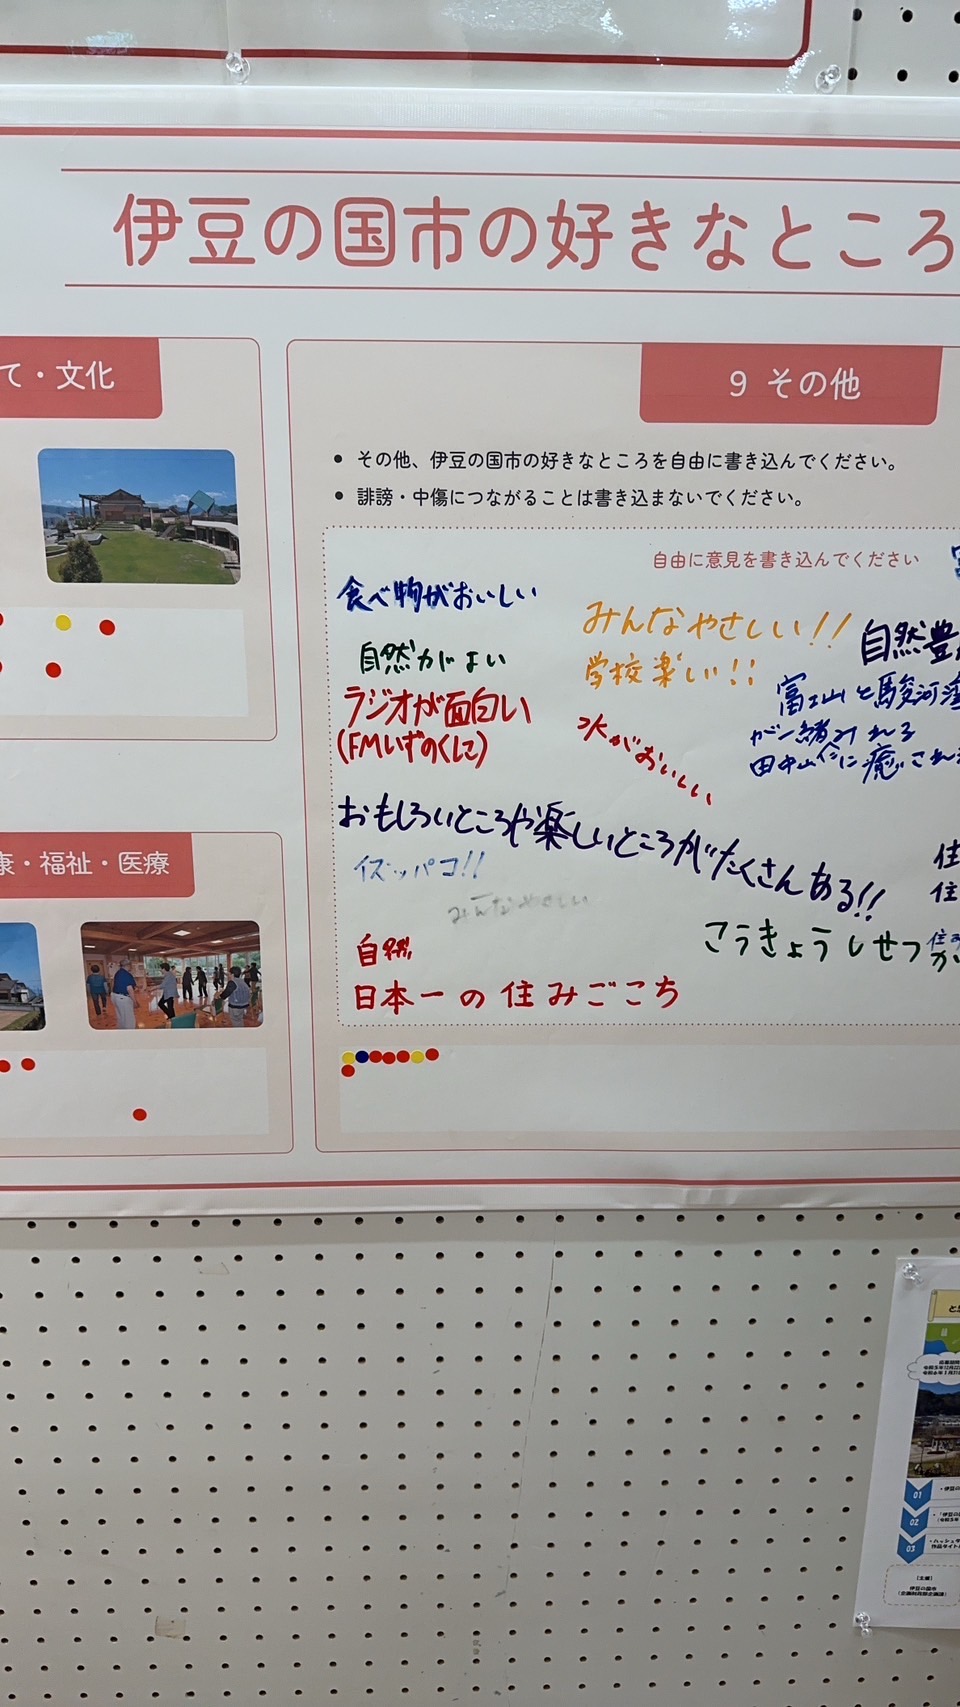 伊豆の国市の好きなところ
て・文化
9 その他
・その他、伊豆の国市の好きなところを自由に書き込んでください。
・誹謗・中傷につながることは書き込まないでください。
自由に意見を書き込んでください
食べ物がおいしい
みんなやさしい!!
学校楽しい!!
自然豊
自然がよい
ラジオが面白い
(FMいずのくに)
水がおいしい
富士山と駿河湾
が一緒にみれる
田中山に癒され
おもしろいところや楽しいところがたくさんある!!
イズッパコ!!
みんなやさしい
住
住
こうきょうしせつ
自然
日本一の住みごこち
康・福祉・医療
01
02
03
【主催】
伊豆の国市